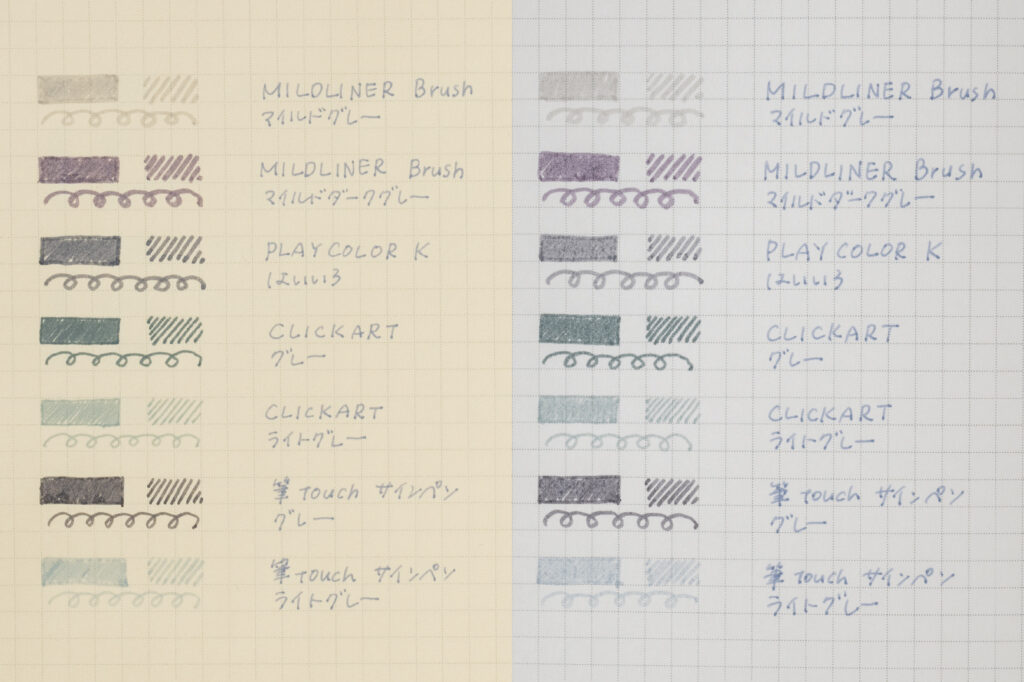 MILDLINER Brush
マイルドグレー
MILDLINER Brush
マイルドダークグレー
PLAY COLOR K
はいいろ
CLICKART
グレー
CLICKART
ライトグレー
筆touch サインペン
グレー
筆touch サインペン
ライトグレー
MILDLINER Brush
マイルドグレー
MILDLINER Brush
マイルドダークグレー
PLAY COLOR K
はいいろ
CLICKART
グレー
CLICKART
ライトグレー
筆touch サインペン
グレー
筆touch サインペン
ライトグレー